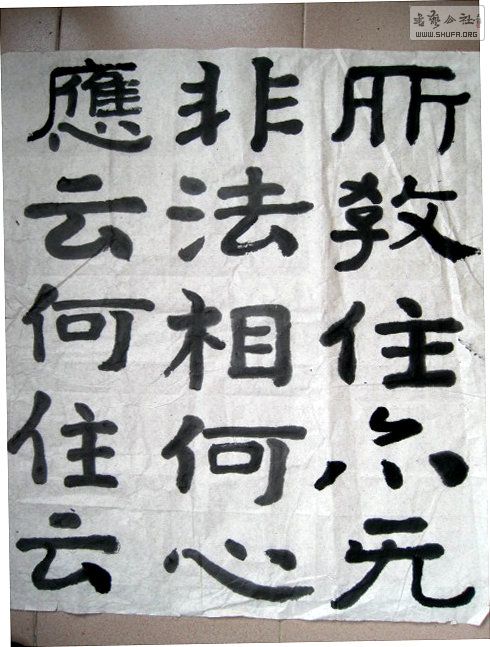 書藝公社
WWW.SHUFA.ORG
所教住无
非法相何心
應云何住云